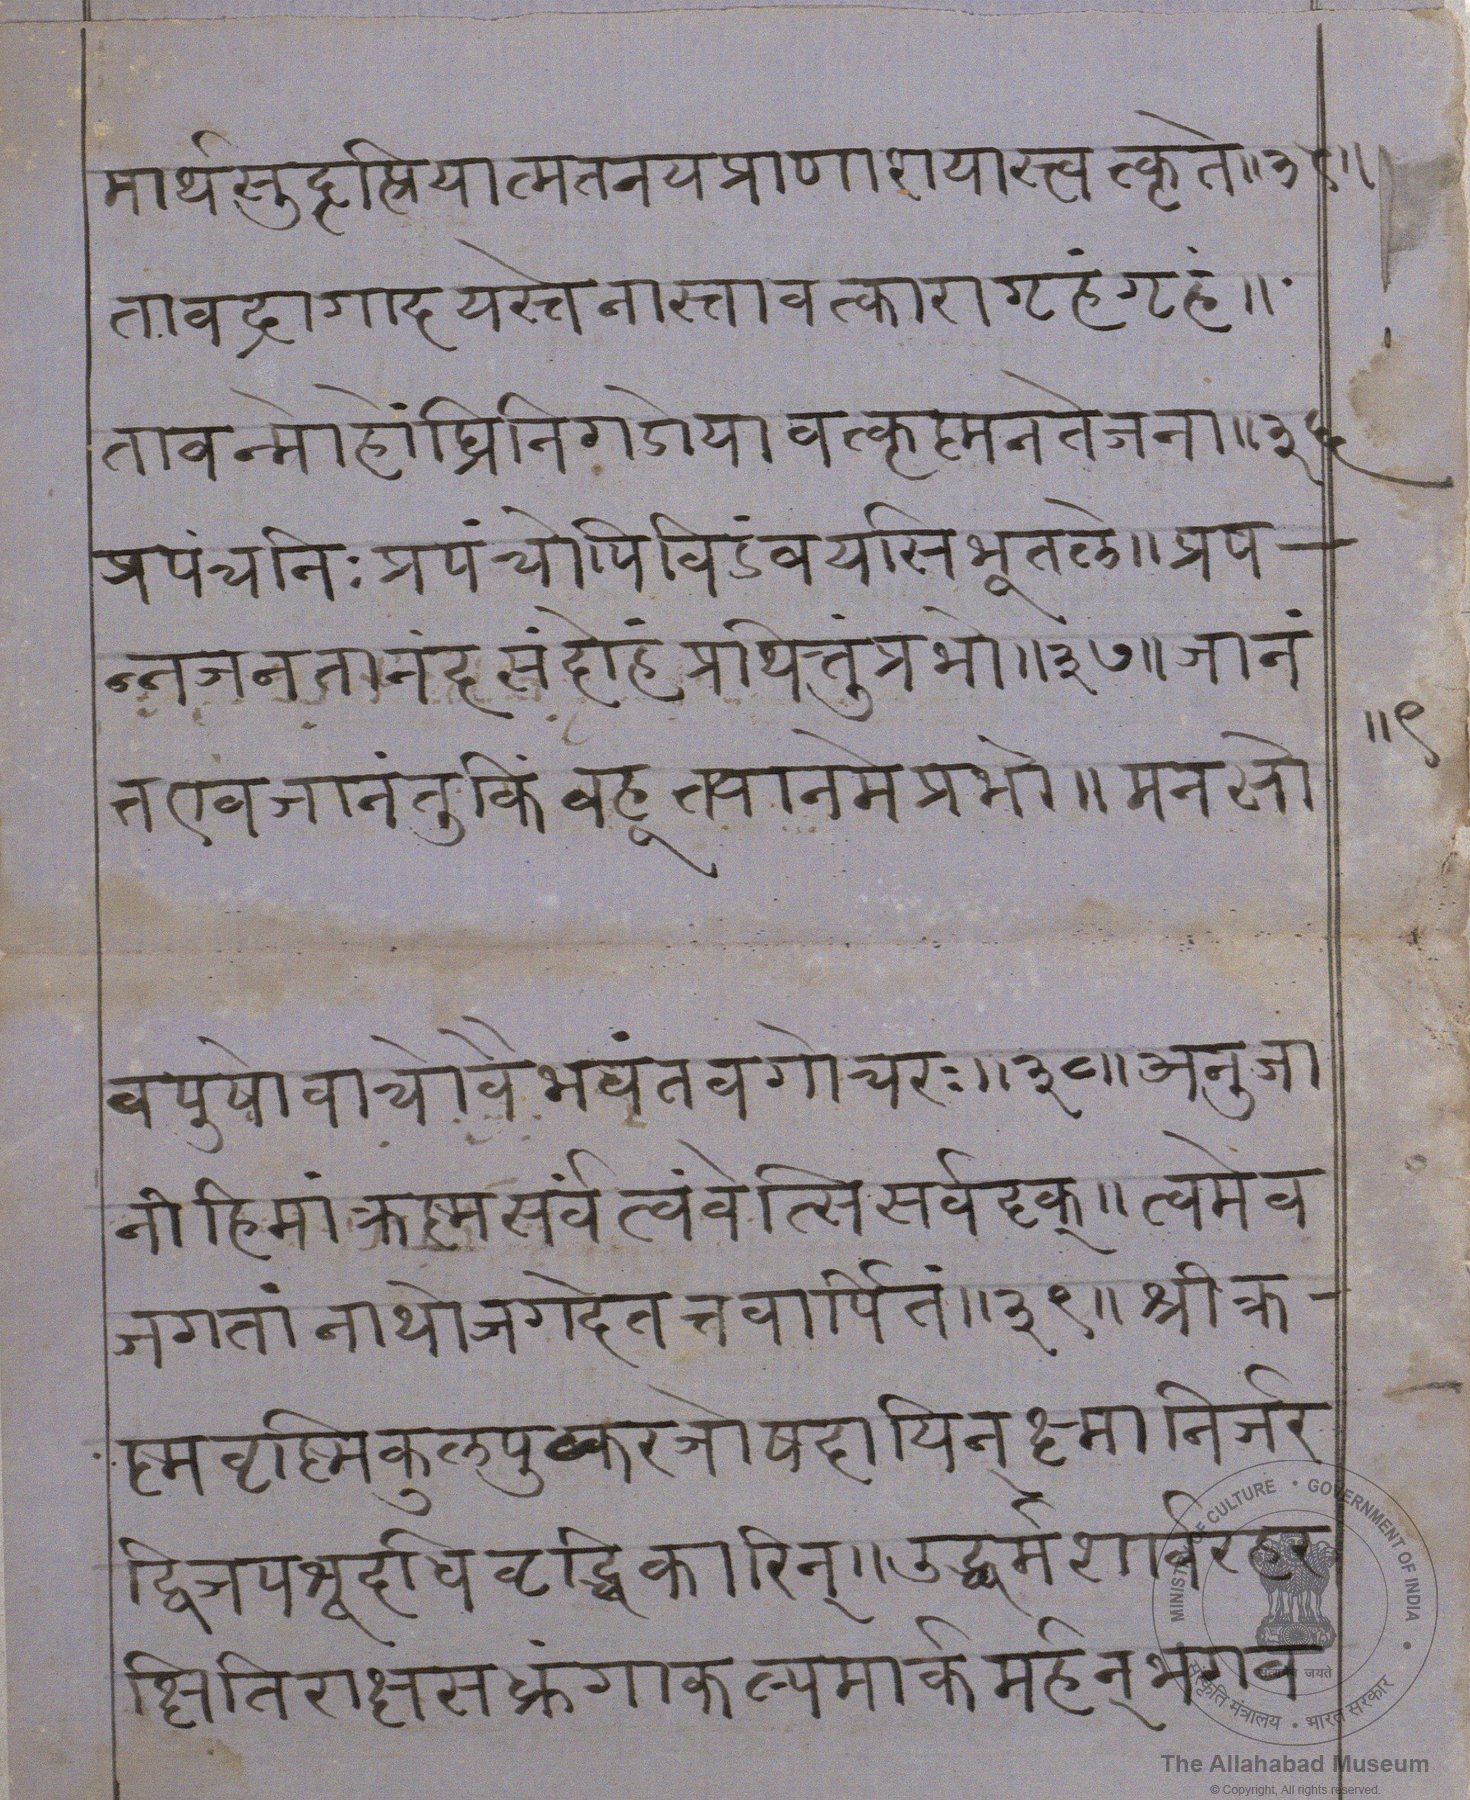 मार्थसुहृत्प्रियात्मतनयप्राणाशयास्त्वत्कृते॥३५॥
तावद्रागादयस्तेनास्तावत्कारागृहंगृहं॥
तावन्मोहोंघ्रिनिगडोयावत्कृष्मनतेजना॥३६
प्रपंचनिःप्रपंचोपिविडंवयसिभूतले॥प्रप-
न्नजनतानंदसंदोहंप्रथितुंप्रभो॥३७॥जानं
॥९
तएवजानंतुकिंवहूत्त्यानमेप्रभो॥मनसो
वपुषोवाचोवैभवंतवगोचरः॥३८॥अनुजा
नीहिमांक्रष्मसर्वंत्वंवेत्सिसर्वदृक्॥त्वमेव
जगतांनाथोजगदेतत्तवार्पितं॥३९॥श्रीक्र-
ष्मवृष्मिकुलपुष्करजोषदायिन्क्ष्मानिर्जर
द्विजपश्रूदधिवृद्धिकारिन्॥उद्धर्मशार्वरहर
क्षितिराक्षसध्रुंगाकल्पमार्कमर्हन्भगव
MINISTRY OF CULTURE · GOVERNMENT OF INDIA
सत्यमेव जयते
संस्कृति मंत्रालय · भारत सरकार
The Allahabad Museum
© Copyright, All rights reserved.